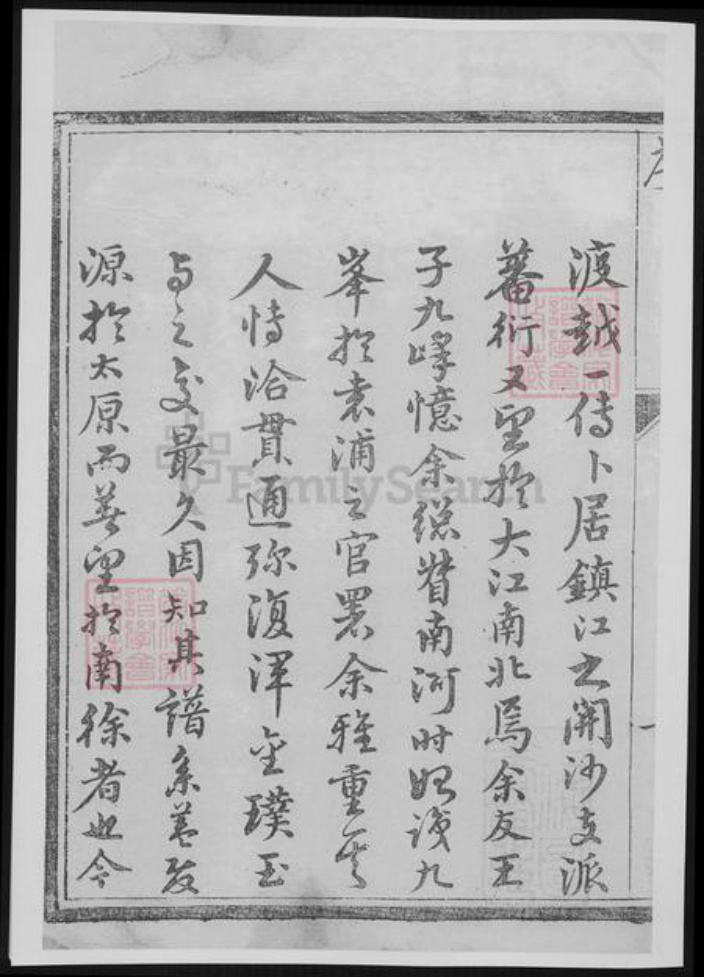 序
渡越一傳卜居鎮江之開沙支派
蕃衍又望於大江南北焉余友王
子九峰憶余總督南河時始識九
峯於袁浦之官署余雅重其
人博洽貫通弥復渾金璞玉
与之交最久因知其譜系蓋發
源於太原而著望於南徐者也今
一
FamilySearch